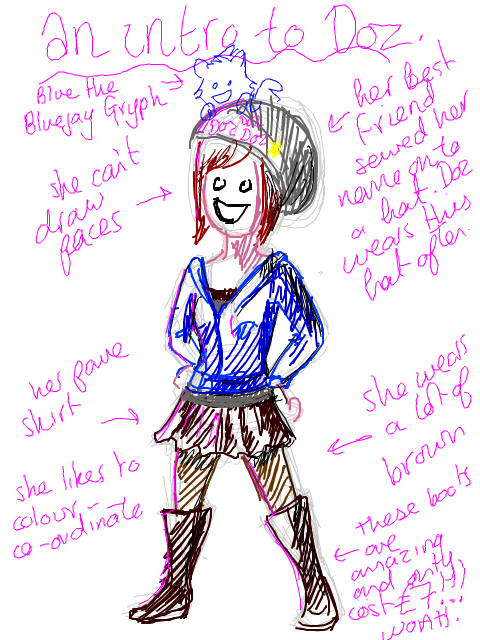 an intro to Doz.
Blue the
Bluejay Gryph
she can't
draw
faces
her fave
skirt
she likes to
colour-
co-ordinate
Doz Doz
Doz Doz
her Best
Friend
sewed her
name on to
a hat. Doz
wears this
hat often.
she wears
a lot of
brown
these boots
are
amazing
and only
cost £7!!!
WOAH!